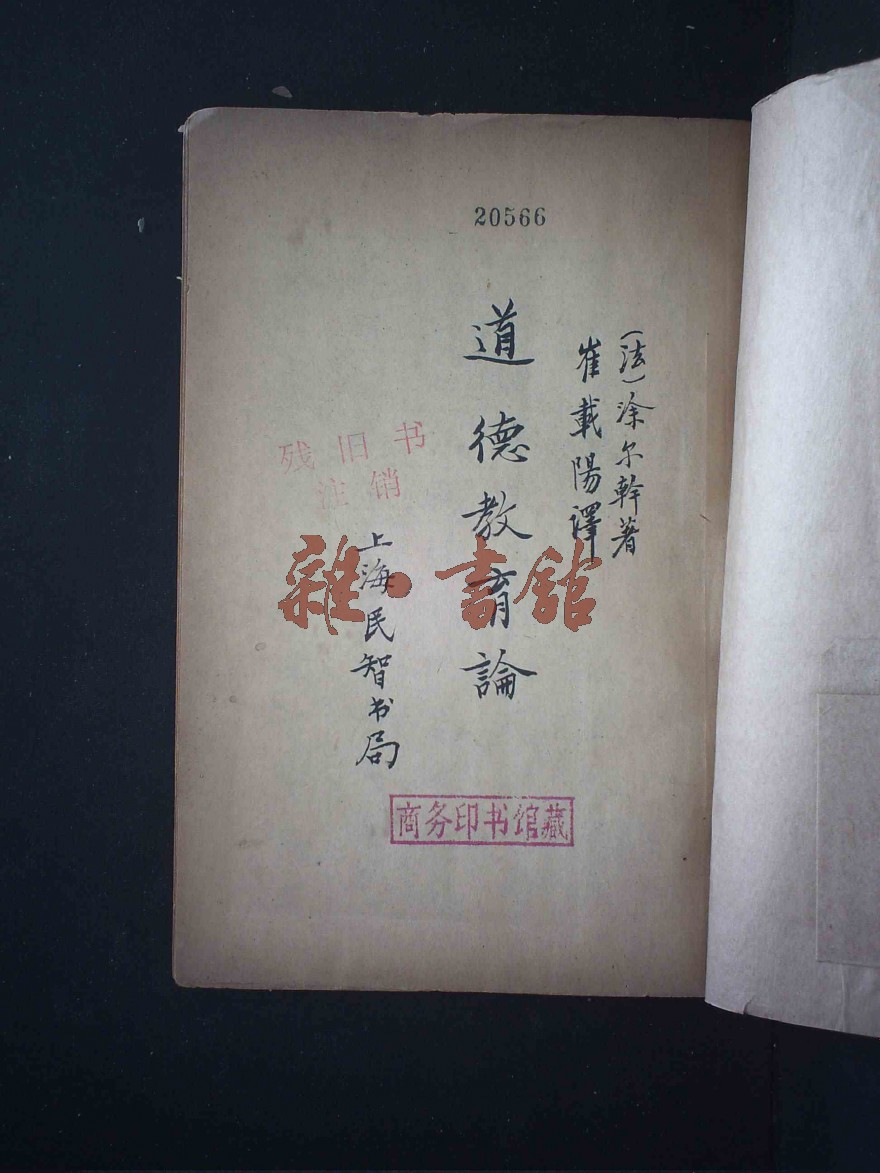 20566
(法)涂尔幹著
崔載陽譯
道德教育論
上海民智书局
残旧书
注销
雜·書館
商务印书馆藏